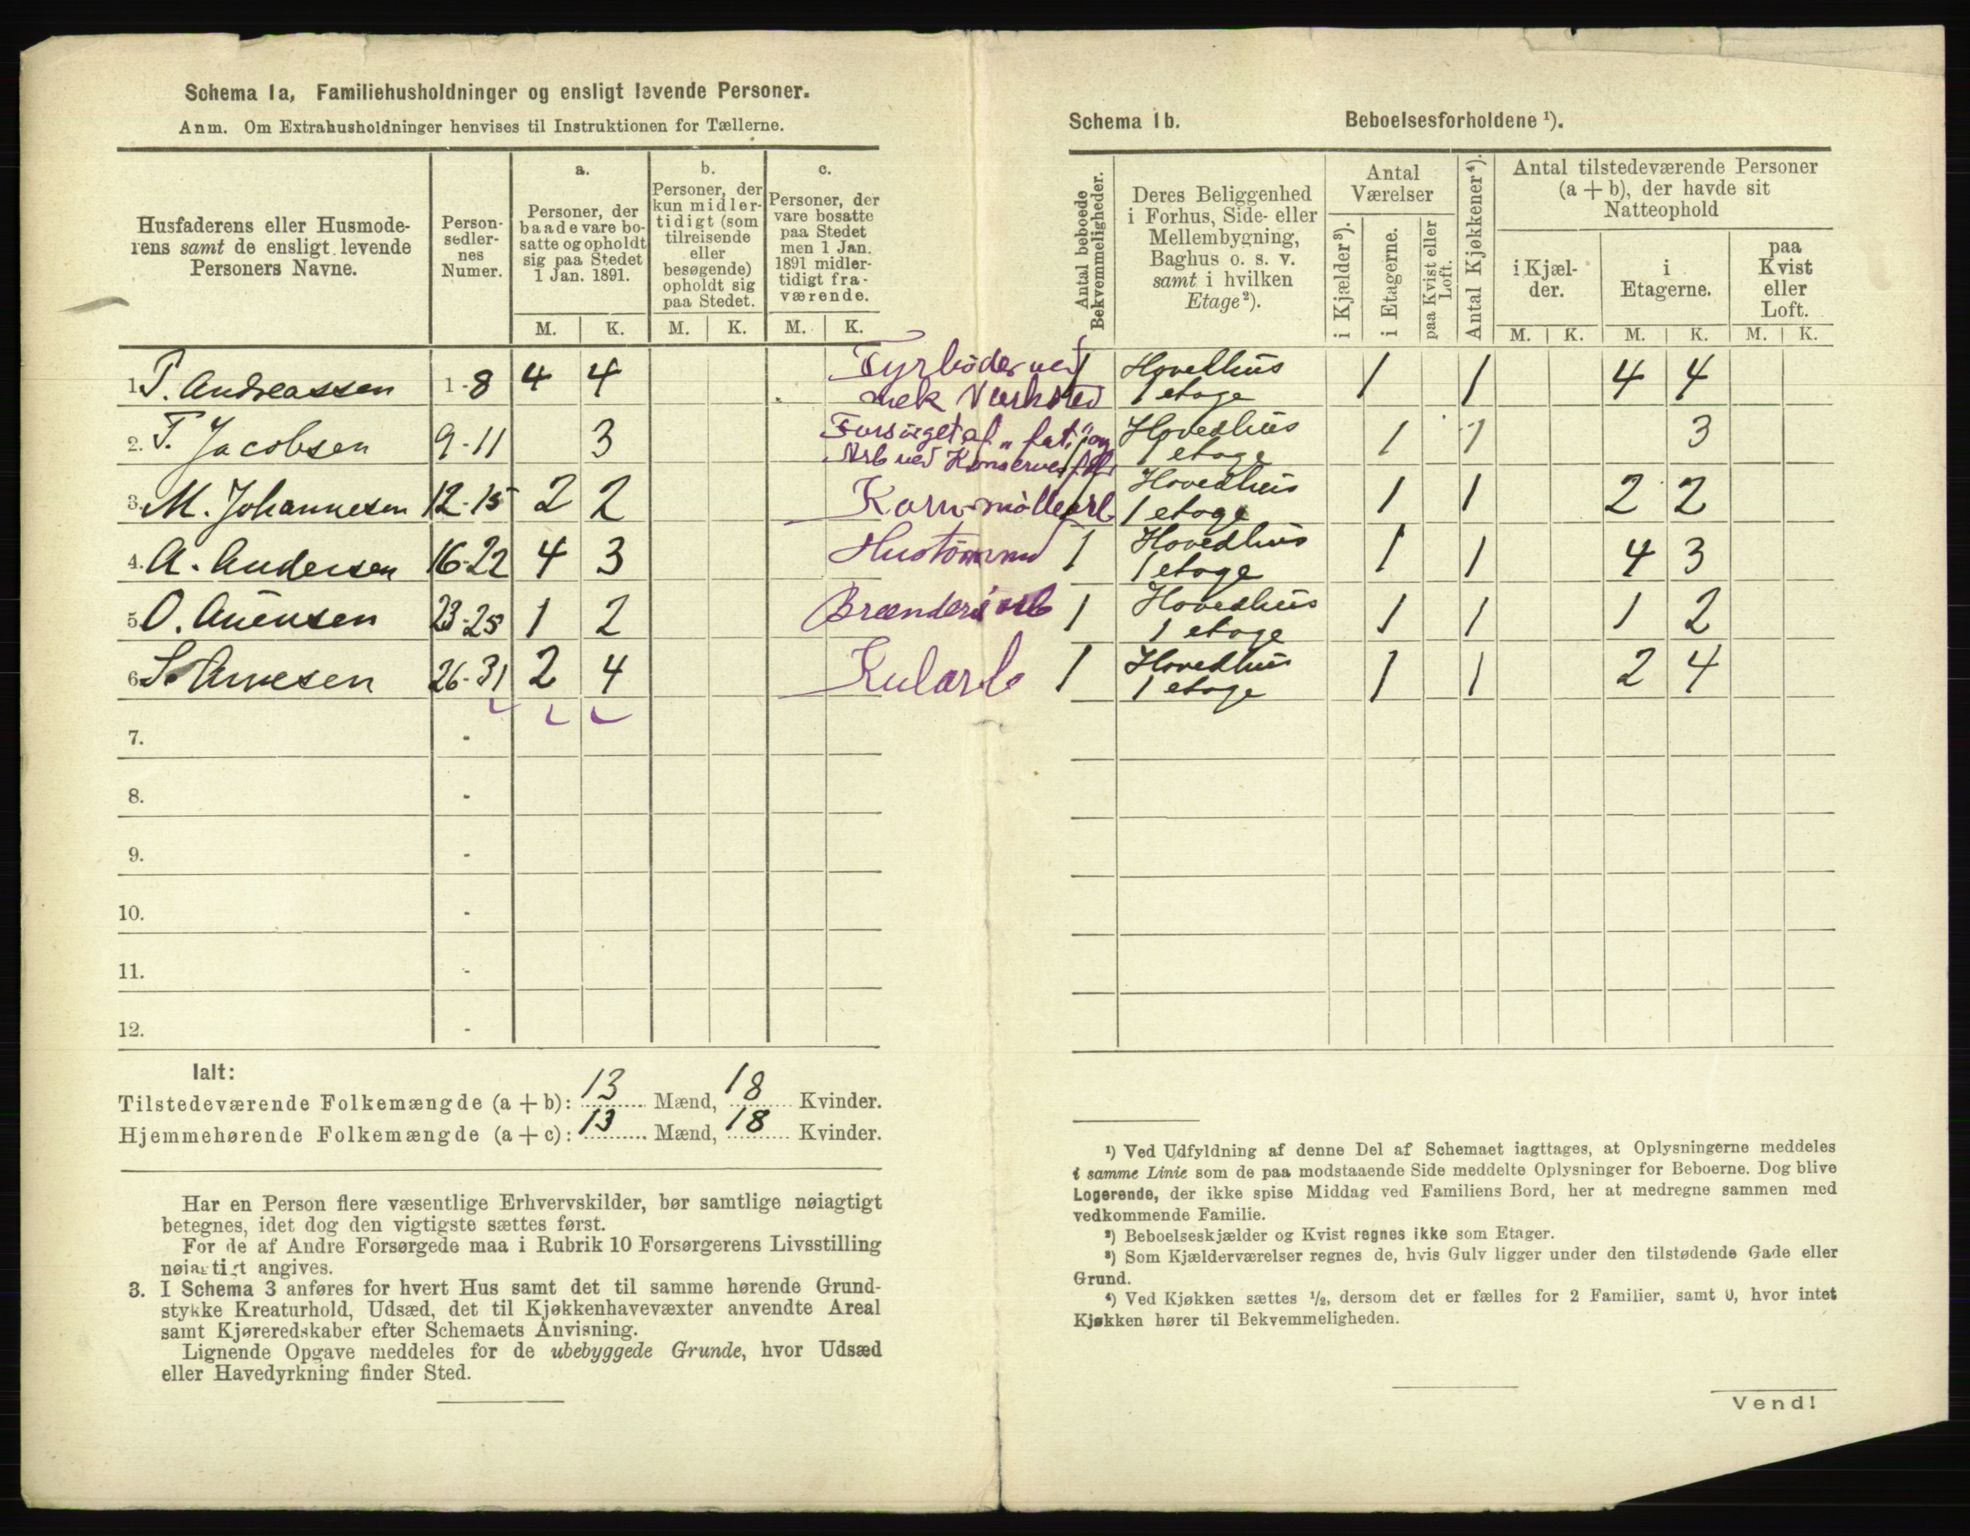 Schema 1a, Familiehusholdninger og ensligt levende Personer.
Anm. Om Extrahusholdninger henvises til Instruktionen for Tællerne.
Husfaderens eller Husmode-
rens samt de ensligt levende
Personers Navne.
Person-
sedler-
nes
Numer.
a.
Personer, der
baade vare bo-
satte og opholdt
sig paa Stedet
1 Jan. 1891.
b.
Personer, der
kun midler-
tidigt (som
tilreisende
eller
besøgende)
opholdt sig
paa Stedet.
c.
Personer, der
vare bosatte
paa Stedet
men 1 Jan.
1891 midler-
tidigt fra-
værende.
M. K. M. K. M. K.
1. P. Andreassen 1-8 4 4 Fyrbøder ved
mek Værksted
2. T. Jacobsen 9-11 3 Forsørget af
Arb ved
3. M. Johannesen 12-15 2 2 Kornmøllearb
4. A. Andersen 16-22 4 3 Hustømmerm
5. O. Auensen 23-25 1 2 Brænderiarb
6. S. Arnesen 26-31 2 4 Kularb
7. -
8. -
9. -
10. -
11. -
12. -
Ialt:
Tilstedeværende Folkemængde (a + b): 13 Mænd, 18 Kvinder.
Hjemmehørende Folkemængde (a + c): 13 Mænd, 18 Kvinder.
Har en Person flere væsentlige Erhvervskilder, bør samtlige nøiagtigt
betegnes, idet dog den vigtigste sættes først.
For de af Andre Forsørgede maa i Rubrik 10 Forsørgerens Livsstilling
nøiagtigt angives.
3. I Schema 3 anføres for hvert Hus samt det til samme hørende Grund-
stykke Kreaturhold, Udsæd, det til Kjøkkenhavevæxter anvendte Areal
samt Kjøreredskaber efter Schemaets Anvisning.
Lignende Opgave meddeles for de ubebyggede Grunde, hvor Udsæd
eller Havedyrkning finder Sted.
Schema 1b. Beboelsesforholdene ¹).
Antal beboede
Bekvemmeligheder.
Deres Beliggenhed
i Forhus, Side- eller
Mellembygning,
Baghus o. s. v.
samt i hvilken
Etage ²).
Antal
Værelser
i Kjælder ³).
i Etagerne.
paa Kvist eller
Loft.
Antal Kjøkkener ⁴).
Antal tilstedeværende Personer
(a + b), der havde sit
Natteophold
i Kjæl-
der.
i
Etagerne.
paa
Kvist
eller
Loft.
M. K. M. K. M. K.
1 Hovedhus
1 etage 1 1 4 4
1 Hovedhus
1 etage 1 1 3
1 Hovedhus
1 etage 1 1 2 2
1 Hovedhus
1 etage 1 1 4 3
1 Hovedhus
1 etage 1 1 1 2
1 Hovedhus
1 etage 1 1 2 4
¹) Ved Udfyldning af denne Del af Schemaet iagttages, at Oplysningerne meddeles
i samme Linie som de paa modstaaende Side meddelte Oplysninger for Beboerne. Dog blive
Logerende, der ikke spise Middag ved Familiens Bord, her at medregne sammen med
vedkommende Familie.
²) Beboelseskjælder og Kvist regnes ikke som Etager.
³) Som Kjælderværelser regnes de, hvis Gulv ligger under den tilstødende Gade eller
Grund.
⁴) Ved Kjøkken sættes ½, dersom det er fælles for 2 Familier, samt 0, hvor intet
Kjøkken hører til Bekvemmeligheden.
Vend!